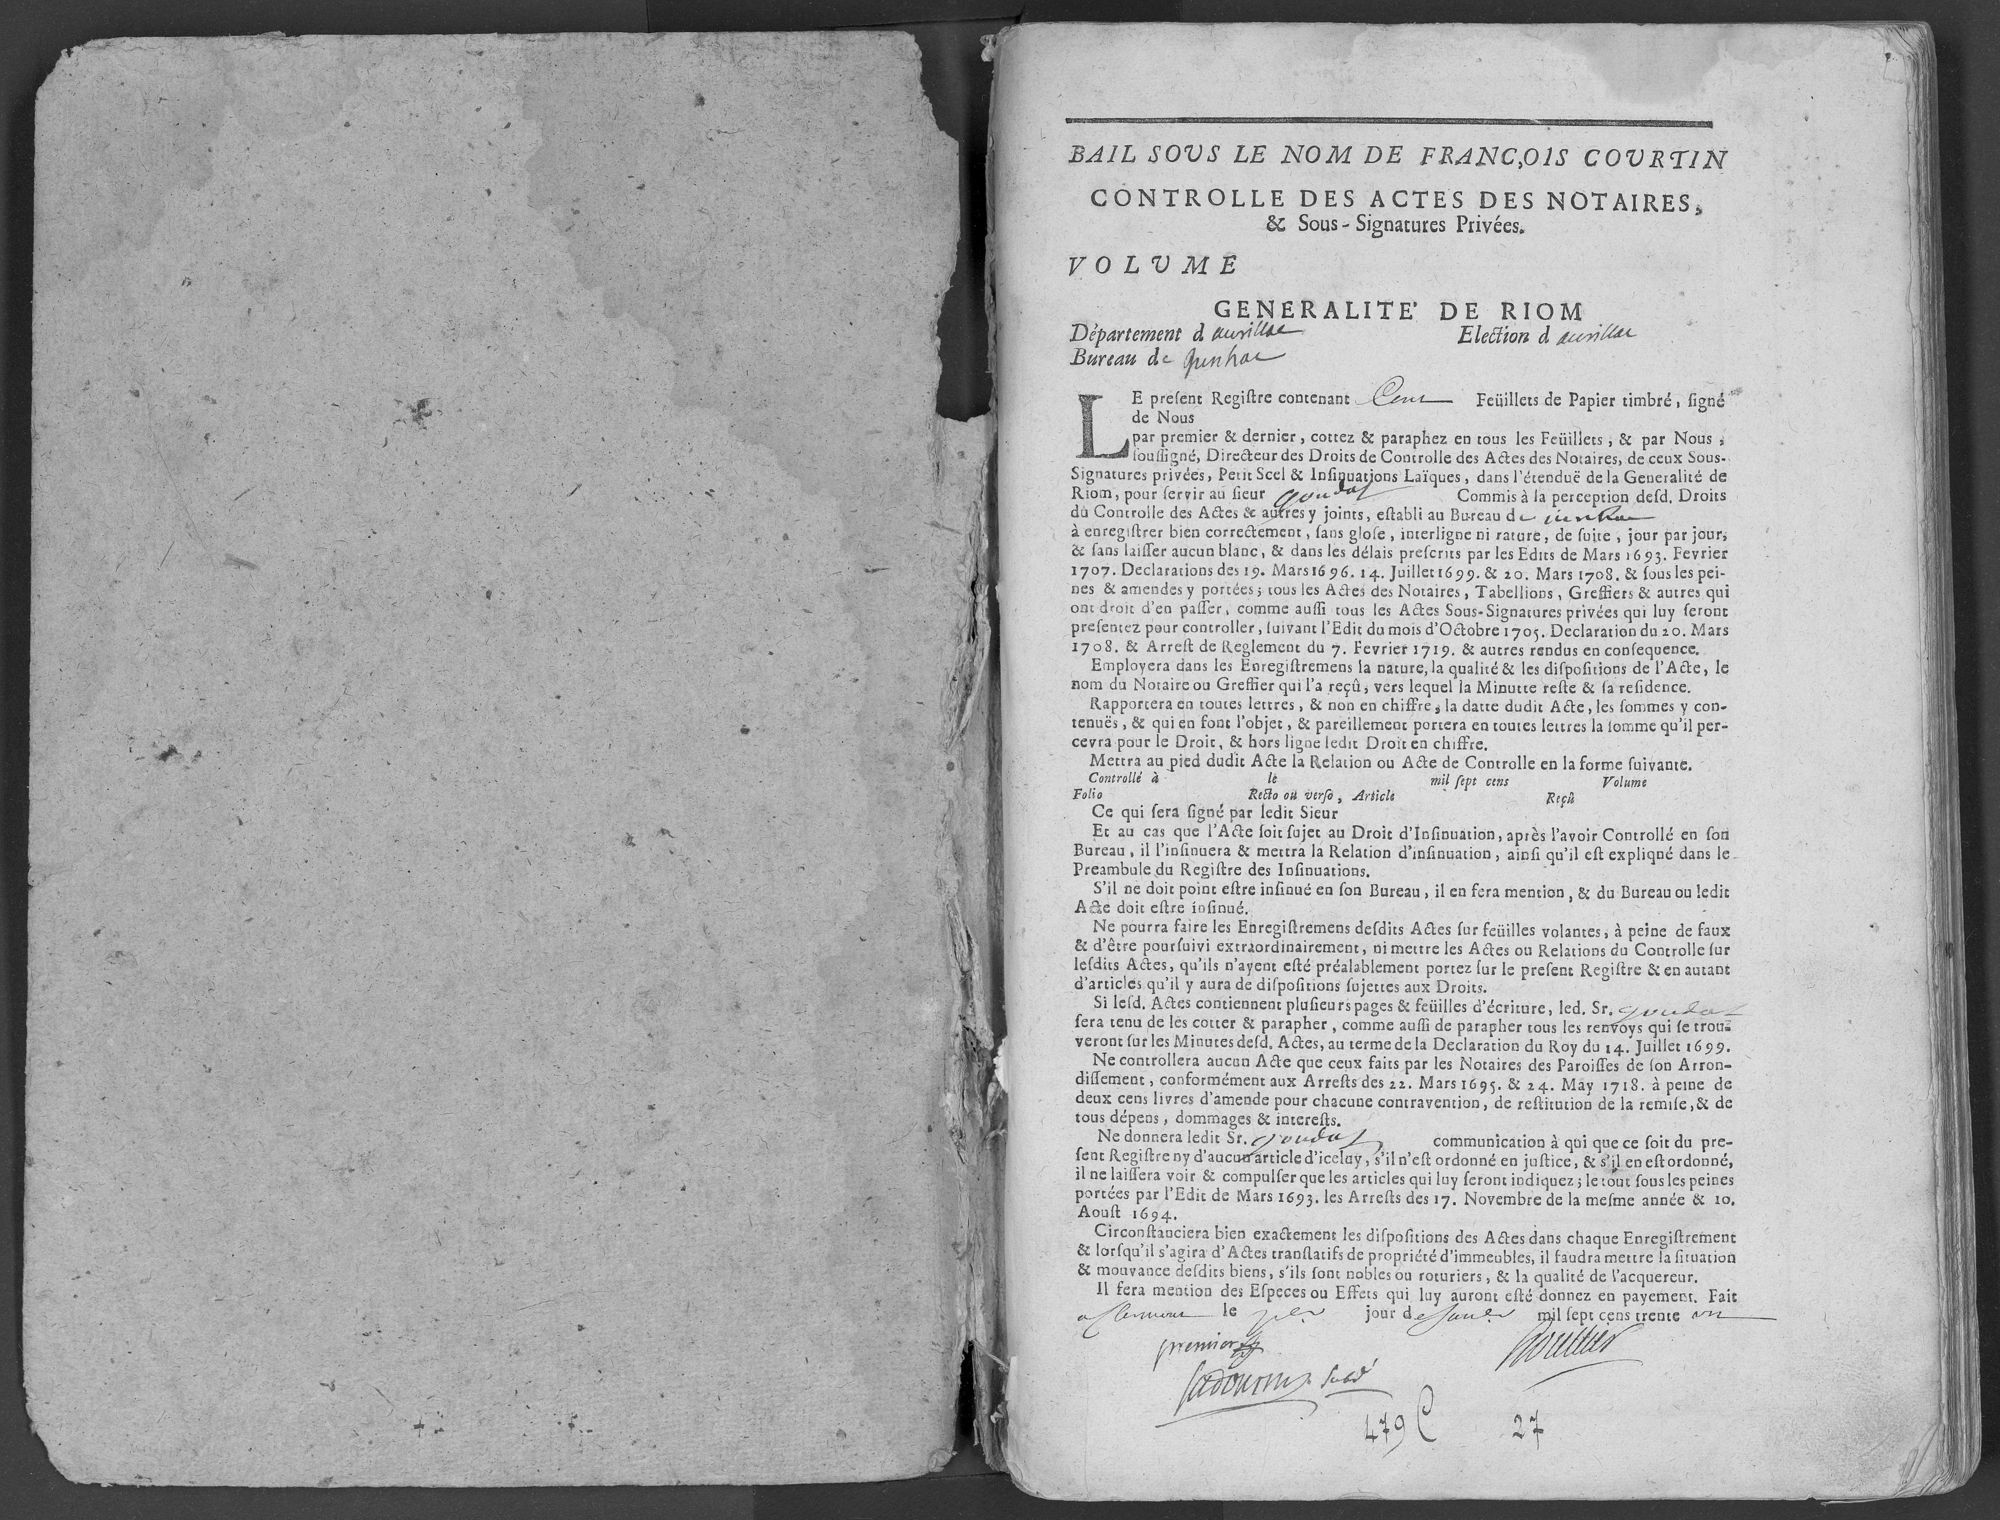 BAIL SOUS LE NOM DE FRANC,OIS COURTIN
CONTROLLE DES ACTES DES NOTAIRES,
& Sous-Signatures Privées.
VOLUME
GENERALITE' DE RIOM
Département d aurillac Election d aurillac
Bureau de Junhac
LE present Registre contenant Cent Feüillets de Papier timbré, signé
de Nous
par premier & dernier, cottez & paraphez en tous les Feüillets, & par Nous,
soussigné, Directeur des Droits de Controlle des Actes des Notaires, de ceux Sous-
Signatures privées, Petit Scel & Insinuations Laïques, dans l'étenduë de la Generalité de
Riom, pour servir au sieur goudat Commis à la perception desd. Droits
du Controlle des Actes & autres y joints, establi au Bureau de junhac
à enregistrer bien correctement, sans glose, interligne ni rature, de suite, jour par jour,
& sans laisser aucun blanc, & dans les délais prescrits par les Edits de Mars 1693. Fevrier
1707. Declarations des 19. Mars 1696. 14. Juillet 1699. & 20. Mars 1708. & sous les pei-
nes & amendes y portées; tous les Actes des Notaires, Tabellions, Greffiers & autres qui
ont droit d'en passer, comme aussi tous les Actes Sous-Signatures privées qui luy seront
presentez pour controller, suivant l'Edit du mois d'Octobre 1705. Declaration du 20. Mars
1708. & Arrest de Reglement du 7. Fevrier 1719. & autres rendus en consequence.
Employera dans les Enregistremens la nature, la qualité & les dispositions de l'Acte, le
nom du Notaire ou Greffier qui l'a reçû, vers lequel la Minutte reste & sa residence.
Rapportera en toutes lettres, & non en chiffre, la datte dudit Acte, les sommes y con-
tenuës, & qui en font l'objet, & pareillement portera en toutes lettres la somme qu'il per-
cevra pour le Droit, & hors ligne ledit Droit en chiffre.
Mettra au pied dudit Acte la Relation ou Acte de Controlle en la forme suivante.
Controllé à le mil sept cens Volume
Folio Recto ou verso, Article Reçû
Ce qui sera signé par ledit Sieur
Et au cas que l'Acte soit sujet au Droit d'Insinuation, après l'avoir Controllé en son
Bureau, il l'insinuera & mettra la Relation d'insinuation, ainsi qu'il est expliqué dans le
Preambule du Registre des Insinuations.
S'il ne doit point estre insinué en son Bureau, il en fera mention, & du Bureau ou ledit
Acte doit estre insinué.
Ne pourra faire les Enregistremens desdits Actes sur feüilles volantes, à peine de faux
& d'être poursuivi extraordinairement, ni mettre les Actes ou Relations du Controlle sur
lesdits Actes, qu'ils n'ayent esté préalablement portez sur le present Registre & en autant
d'articles qu'il y aura de dispositions sujettes aux Droits.
Si lesd. Actes contiennent plusieurs pages & feüilles d'écriture, led. Sr. goudat
sera tenu de les cotter & parapher, comme aussi de parapher tous les renvoys qui se trou-
veront sur les Minutes desd. Actes, au terme de la Declaration du Roy du 14. Juillet 1699.
Ne controllera aucun Acte que ceux faits par les Notaires des Paroisses de son Arron-
dissement, conformément aux Arrests des 22. Mars 1695. & 24. May 1718. à peine de
deux cens livres d'amende pour chacune contravention, de restitution de la remise, & de
tous dépens, dommages & interests.
Ne donnera ledit Sr. goudat communication à qui que ce soit du pre-
sent Registre ny d'aucun article d'iceluy, s'il n'est ordonné en justice, & s'il en est ordonné,
il ne laissera voir & compulser que les articles qui luy seront indiquez; le tout sous les peines
portées par l'Edit de Mars 1693. les Arrests des 17. Novembre de la mesme année & 10.
Aoust 1694.
Circonstanciera bien exactement les dispositions des Actes dans chaque Enregistrement
& lorsqu'il s'agira d'Actes translatifs de propriété d'immeubles, il faudra mettre la situation
& mouvance desdits biens, s'ils sont nobles ou roturiers, & la qualité de l'acquereur.
Il fera mention des Especes ou Effets qui luy auront esté donnez en payement. Fait
a Clermont le per jour de Janer mil sept cens trente un
premier
479 C 27